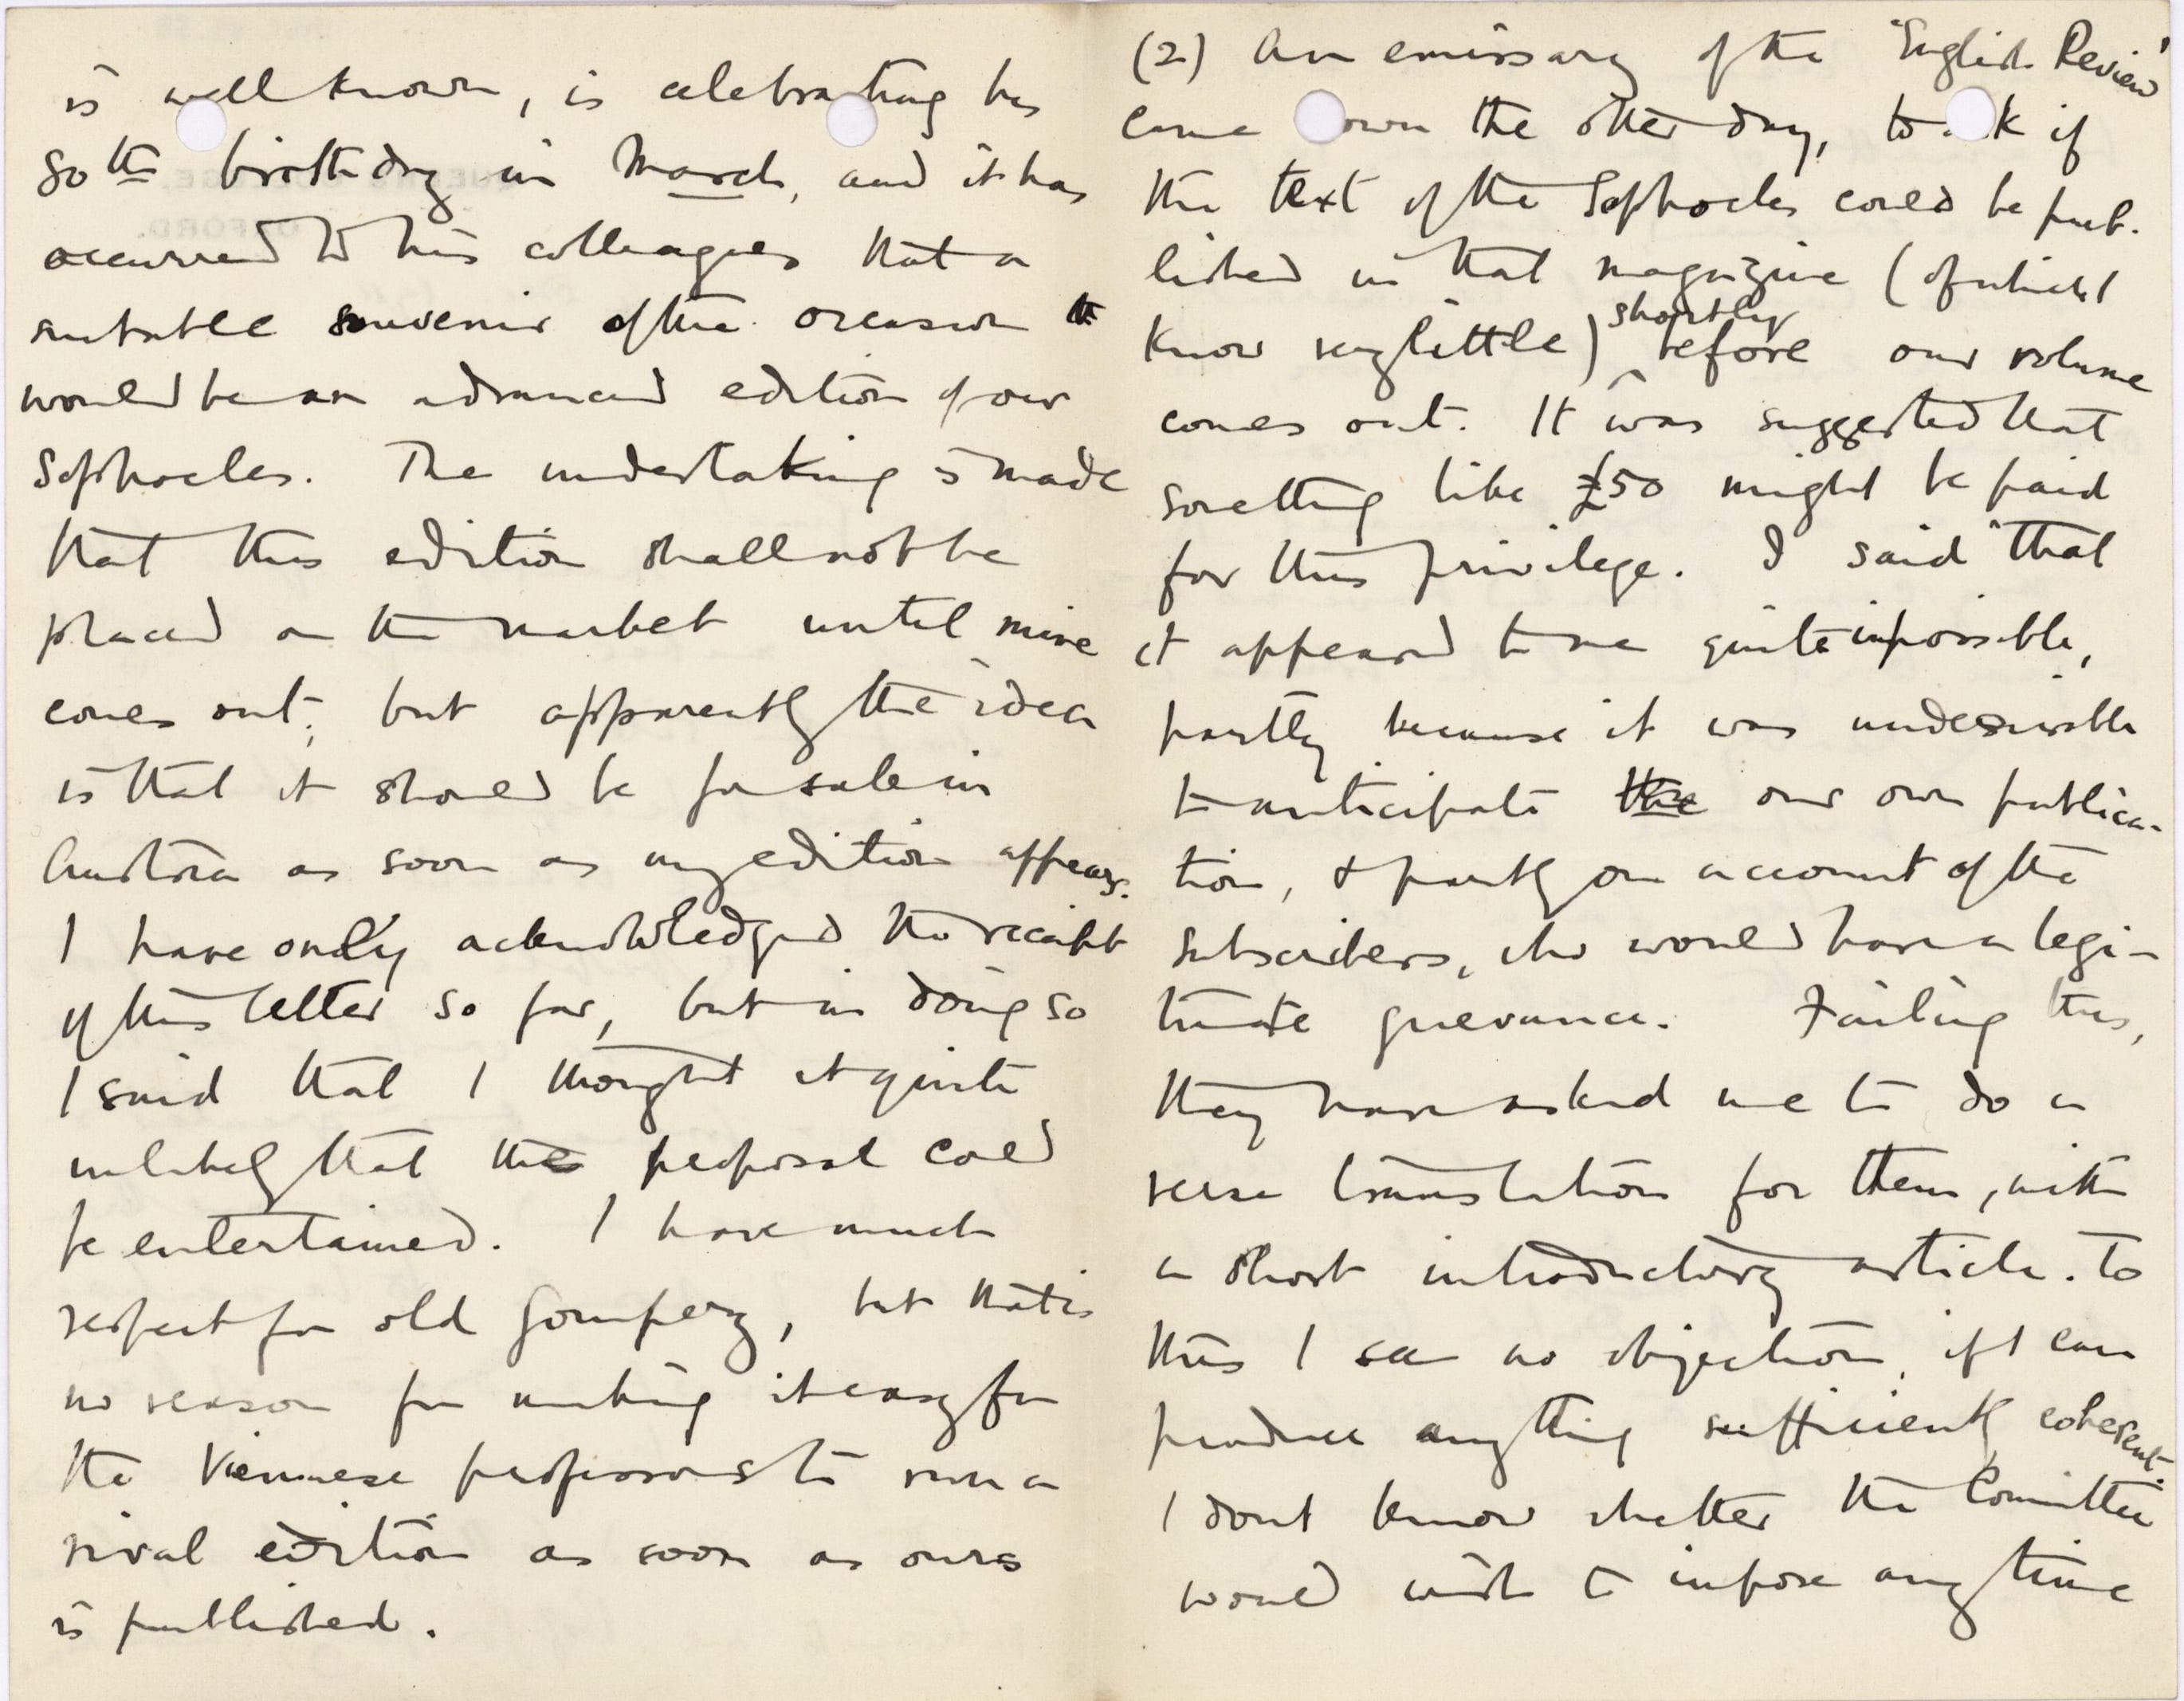 is well known, is celebrating his
80th birthday in March, and it has
occurred to his colleagues that a
suitable souvenir of the occasion
would be an advanced edition of our
Sophocles. The undertaking is made
that this edition shall not be
placed on the market until mine
comes out; but apparently the idea
is that it should be for sale in
Austria as soon as my edition appears.
I have only acknowledged the receipt
of this letter so far, but in doing so
I said that I thought it quite
unlikely that the proposal could
be entertained. I have much
respect for old Gomperz, but that is
no reason for making it easy for
the Viennese professors to run a
rival edition as soon as ours
is published.
(2) An emissary of the 'English Review'
came down the other day, to ask if
the text of the Sophocles could be pub-
lished in that magazine (of which I
know very little) shortly before our volume
comes out. It was suggested that
something like £50 might be paid
for this privilege. I said that
it appeared to me quite impossible,
partly because it was undesirable
to anticipate the our own publica-
tion, & partly on account of the
subscribers, who would have a legi-
timate grievance. Failing this,
they have asked me to do a
verse translation for them, with
a short introductory article. To
this I see no objection, if I can
produce anything sufficiently coherent.
I dont know whether the Committee
would wish to impose any time